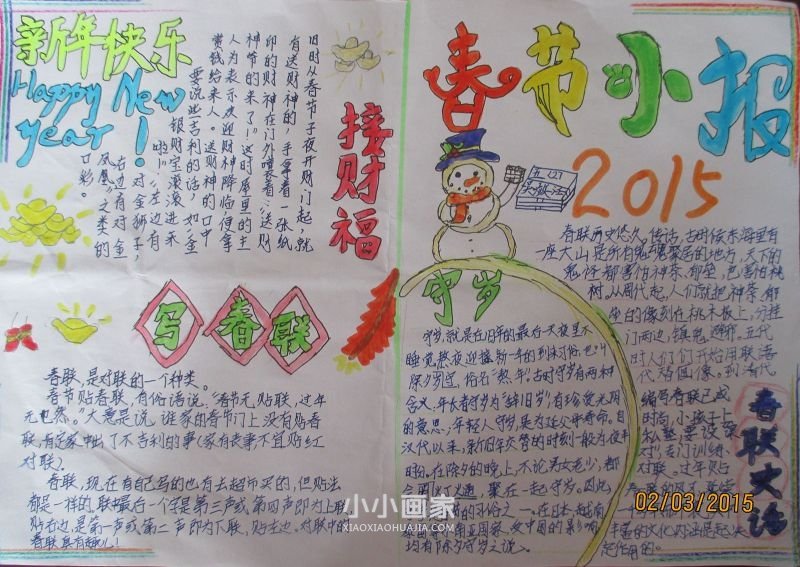 新年快乐
Happy New
year!
春节小报
2015
接财福
旧时从春节子夜开财门起，就
有送财神的，手拿着一张纸
印的财神在门外嚷着：“送财
神爷的来了！”这时屋里的主
人为表示欢迎财神降临便拿
赏钱给来人。送财神的口中
要说些吉利的话，如“金
银财宝滚滚进来
啦！”“左边有
对金狮子，
右边有对金
凤凰”之类的
口彩。
写春联
春联，是对联的一个种类。
春节贴春联，有俗语说：“春节无贴联，过年
大意是说，谁家的春节门上没有贴春
联，肯定家中出了不吉利的事（家有丧事不宜贴红
对联）。
春联，现在有自己写的也有去超市买的，但贴法
都是一样的，联中最后一个字是第三声或第四声即为上联
贴右边，是第一声或第二声即为下联，贴左边。
春联真有趣儿！
守岁
守岁，就是在旧年的最后一天夜里不
睡觉，熬夜迎接新一年的到来
除夕守岁，俗名“熬年”。古时守岁有两种
含义：年长者守岁为“辞旧岁”，有珍爱光阴
的意思；年轻人守岁，是为延父母寿命。自
汉代以来，新旧年交替的时刻一般为夜半
时分。在除夕的晚上，不论男女老少，都
聚在一起守岁。因此，
的习俗之一。在日本、越南、
受中国的影响
均有除夕守岁之说。
春联大话
春联历史悠久。传说，古时候东海里有
一座大山是所有鬼魂聚居的地方，天下的
鬼怪都害怕神荼、郁垒，也害怕桃
树。从周代起，人们就把神荼、郁
垒的像刻在桃木板上，分挂
门两边，镇鬼避邪。五代
时人们开始用联语
代替
编写春联已成
时尚，小孩子上
专门训练
对联。过年贴
丰富的文化内涵是
起作用的。
小小画家
XIAOXIAOHUAJIA.COM
02/03/2015